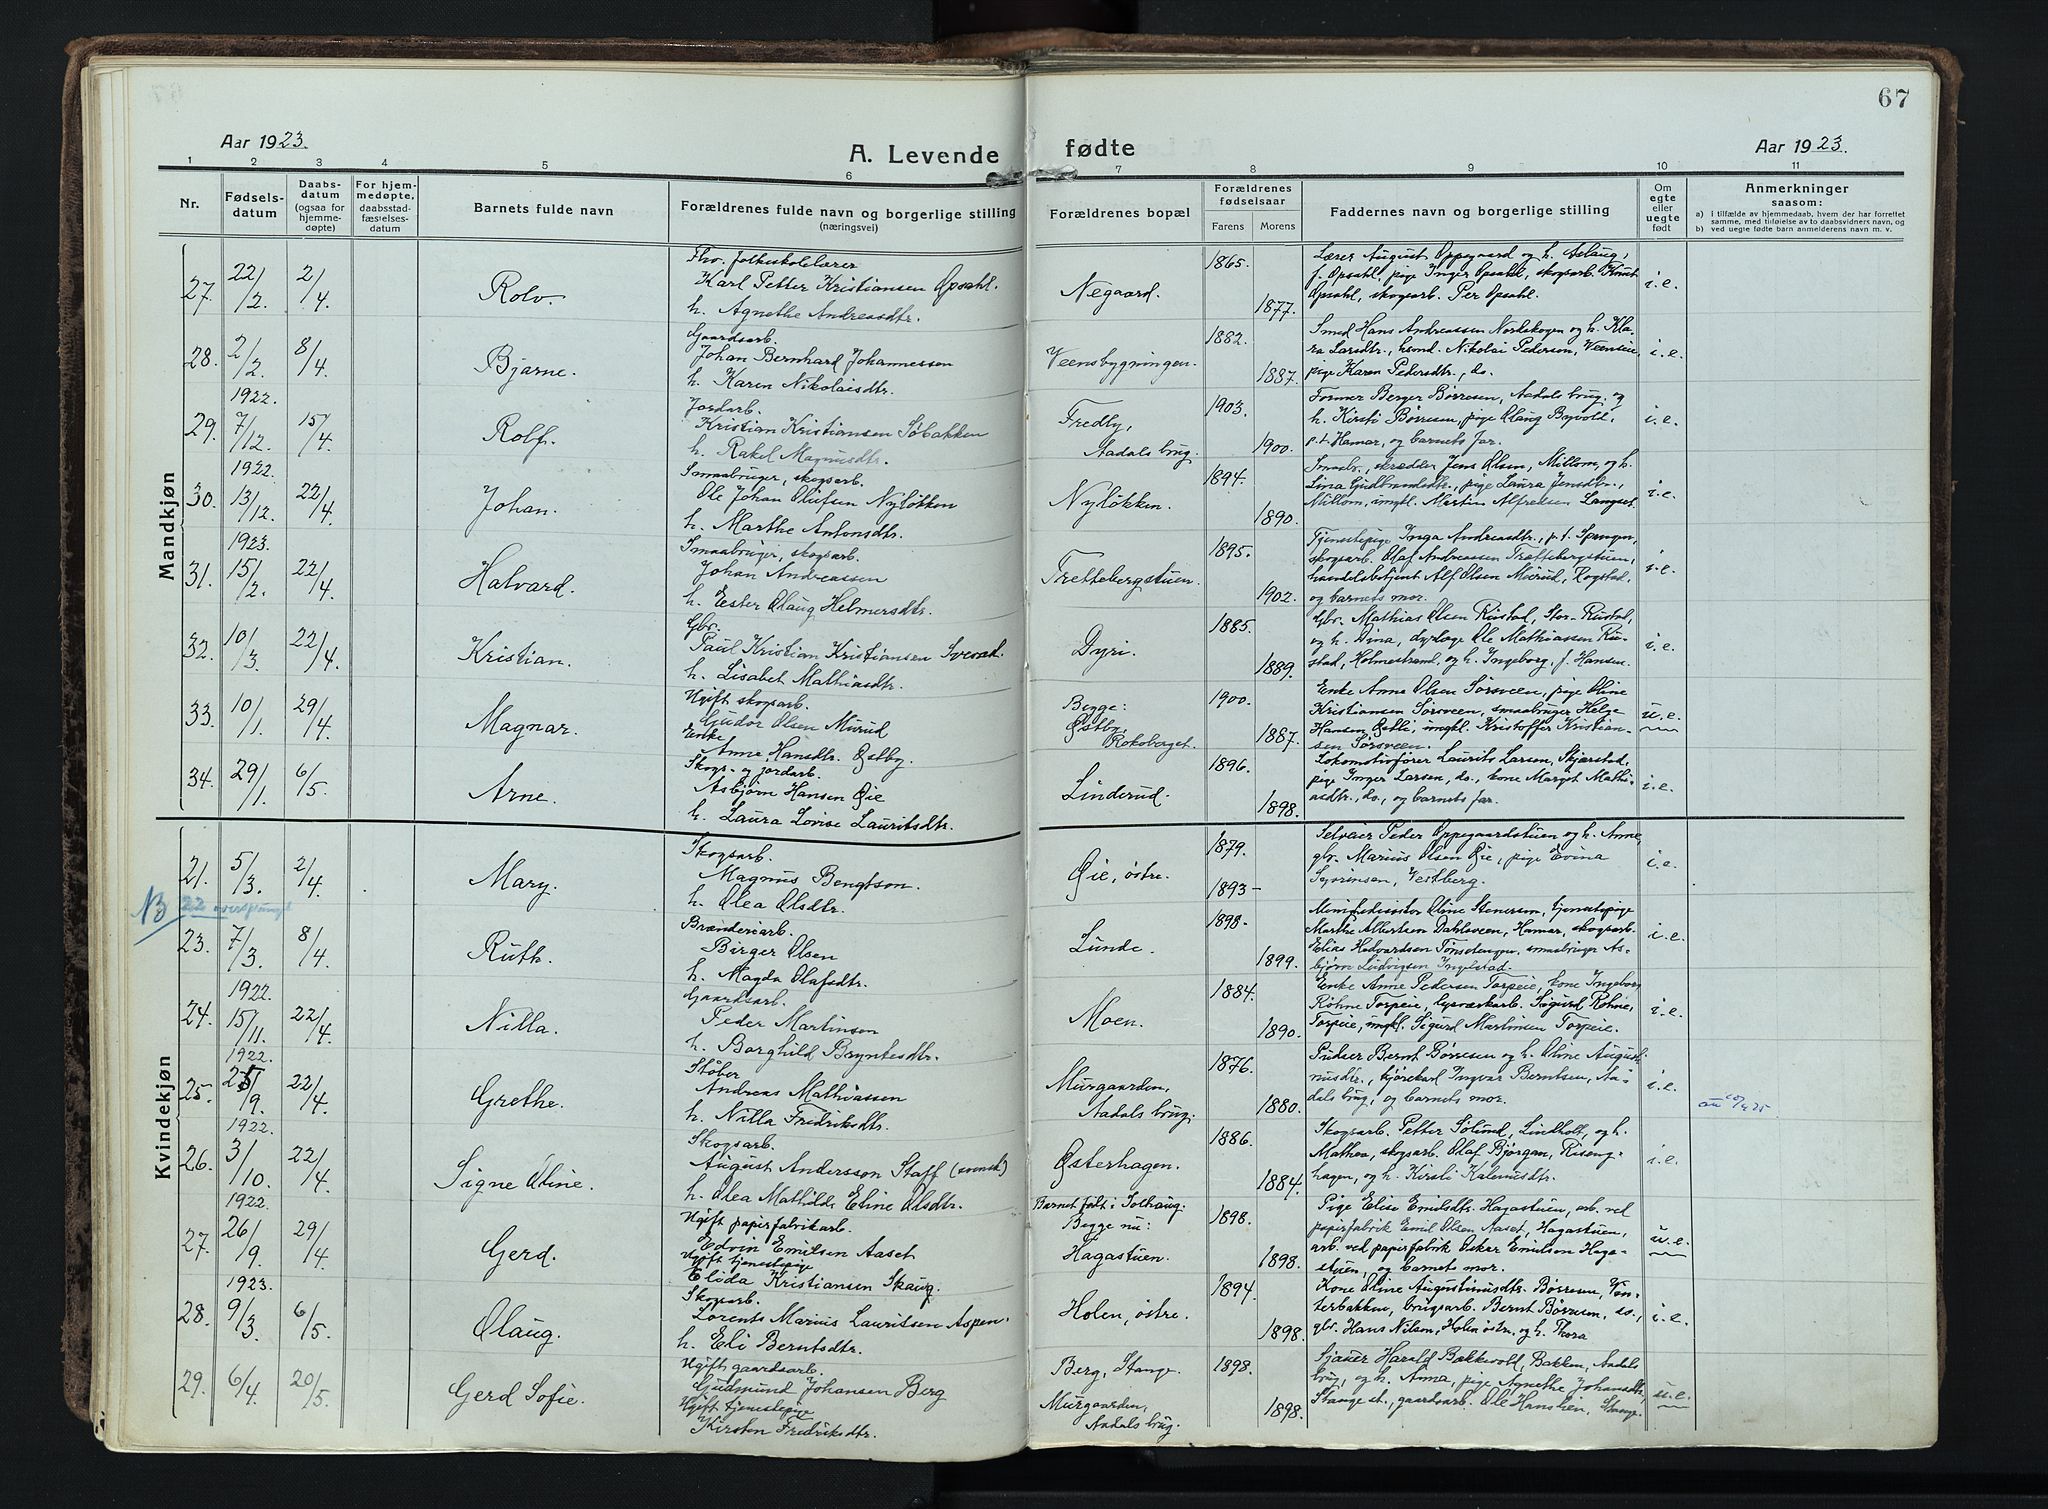 67
Aar 1923.
A. Levende
fødte
Aar 1923.
1 2 3 4 5 6 7 8 9 10 11
Nr.
Fødsels-
datum
Daabs-
datum
(ogsaa for
hjemme-
døpte)
For hjem-
medøpte,
daabsstad-
fæstelses-
datum
Barnets fulde navn
Forældrenes fulde navn og borgerlige stilling
(næringsvei)
Forældrenes bopæl
Forældrenes
fødselsaar
Farens
Morens
Faddernes navn og borgerlige stilling
Om
egte
eller
uegte
født
Anmerkninger
saasom:
a) i tilfælde av hjemmedaab, hvem der har forrettet
samme, med tilføielse av to daabsvidners navn, og
b) ved uegte fødte barn anmelderens navn m. v.
Mandkjøn
27. 22/2. 2/4 Rolv.
Fhv. folkeskolelærer
Karl Petter Kristiansen Opsahl.
h. Agnethe Andreasdtr.
Negaard.
1865.
1877.
Lærer August Oppegaard og h. Aslaug,
f. Opsahl, pige Inger Opsahl, skogsarb. Knut
Opsahl, skogsarb. Per Opsahl.
i.e.
28. 2/2. 8/4 Bjarne.
Gaardsarb.
Johan Bernhard Johannessen
h. Karen Nikolaisdtr.
Veensbygningen.
1882.
1887.
Smed Hans Andreassen Nordskogen og h. Kla-
ra Larsdtr., husmd. Nikolai Pederson, Veenseie,
pige Karen Pedersdtr., do.
i.e.
1922.
29. 7/12. 15/4 Rolf.
Jordarb.
Kristian Kristiansen Søbakken
h. Rakel Magnusdtr.
Fredly,
Aadals brug.
1903.
1900.
Former Berger Børresen, Aadals brug, og
h. Kirsti Børresen, pige Olaug Byvold,
p.t. Hamar, og barnets far.
i.e.
1922.
30. 13/12. 22/4 Johan.
Smaabruger, skogsarb.
Ole Johan Olufsen Nyløkken
h. Marthe Antonsdtr.
Nyløkken.
1894.
1890.
Smaabr., skrædder Jens Olsen, Millom, og h.
Lina Gudbrandsdtr., pige Laura Jensdtr.,
Millom, ungkl. Martin Alfredsen Langset.
i.e.
1923.
31. 15/2. 22/4 Halvard.
Smaabruger, skogsarb.
Johan Andreassen
h. Ester Olaug Helmersdtr.
Trettebergstuen.
1895.
1902.
Tjenestepige Inga Andreasdtr., p.t. Spangen,
skogsarb. Olaf Andreassen Trettebergstuen,
handelsbetjent Alf Olsen Murud, Rogstad,
og barnets mor.
i.e.
32. 10/3. 22/4 Kristian.
Gbr.
Paul Kristian Kristiansen Sverad.
h. Lisabet Mathiasdtr.
Dyri.
1885.
1889.
Gbr. Mathias Olsen Rustad, Stor-Rustad,
og h. Dina, dyrlæge Ole Mathiassen Ru-
stad, Holmestrand, og h. Ingeborg, f. Hansen.
i.e.
33. 10/1. 29/4 Magnar.
Ugift skogsarb.
Gudor Olsen Murud
Enke
Anne Hansdtr. Østby.
Begge:
Østby,
Rokoberget.
1900.
1887.
Enke Anna Olsen Sørsveen, pige Oline
Kristiansen Sørsveen, smaabruger Helge
Hansen Østli, ungkl. Kristoffer Kristian-
sen Sørsveen.
u.e.
34. 29/1. 6/5. Arne.
Skogs- og jordarb.
Asbjørn Hansen Øie
h. Laura Lovise Lauritsdtr.
Linderud.
1896.
1898.
Lokomotivfører Laurits Larsen, Skjærstad,
pige Inger Larsen, do., kone Margit Mathi-
asdtr., do., og barnets far.
i.e.
Kvindekjøn
21. 5/3. 2/4 Mary.
Skogsarb.
Magnus Bengtson.
h. Olea Olsdtr.
Øie, østre.
1879.
1893-
Selveier Peder Oppegaardstuen og h. Anne,
gbr. Marius Olsen Øie, pige Evina
Syvrinsen, Vestberg.
i.e.
NB 22 oversprunget
23. 7/3. 8/4 Ruth.
Brænderiarb.
Birger Olsen
h. Magda Olafsdtr.
Lunde.
1898.
1899.
Oline Stenersen, tjenestepige
Marthe Albertsen Dahlsveen, Hamar, skogsarb.
Elias Hedvardsen, smaabruger As-
bjørn Ludvigsen Ingelstad.
i.e.
1922.
24. 15/11. 22/4 Nilla.
Gaardsarb.
Peder Martinsen
h. Borghild Bryntesdtr.
Moen.
1884.
1890.
Enke Anne Pedersen Torpeie, kone Ingeborg
Røhne Torpeie, lysværkarb. Sigurd Røhne,
Torpeie, ungkl. Sigurd Martinsen Torpeie.
i.e.
1922.
25. 25/9. 22/4 Grethe.
Støber
Andreas Mathiassen
h. Nilla Fredriksdtr.
Murgaarden,
Aadals brug.
1876.
1880.
Pudser Bernt Børresen og h. Oline August-
inusdtr., kjørekarl Ingvar Berntsen, Aa-
dals brug, og barnets mor.
i.e.
1922.
26. 3/10. 22/4 Signe Oline.
Skogsarb.
August Andersson Staff (svensk)
h. Olea Mathilde Eline Olsdtr.
Østerhagen.
1886.
1884.
Skogsarb. Petter Sølund, Lindholt, og h.
Mathea, skogsarb. Olaf Bjørgan, Riseng-
hagen, og h. Kirsti Kalenusdtr.
i.e.
1922.
27. 26/9. 29/4 Gerd.
Ugift papirfabrikarb.
Edvin Emilsen Aaset
Ugift tjenestepige
Elida Kristiansen Skaug.
Barnet født i Solhaug.
Begge nu:
Hagastuen.
1898.
1898.
Pige Elise Emilsdtr. Hagastuen, arb. ved
papirfabrik Emil Olsen Aaset, Hagastuen,
arb. ved papirfabrik Oskar Emilson Haga-
stuen, og barnets mor.
u.e.
1923.
28. 9/3. 6/5. Olaug.
Skogsarb.
Lorents Marius Lauritsen Aspen.
h. Eli Berntsdtr.
Holen, østre.
1894.
1898.
Kone Oline Augustinusdtr. Børresen, Von-
terbakken, brugsarb. Bernt Børresen, do.,
gbr. Hans Nilson, Holen østre, og h. Thora
i.e.
29. 6/4. 20/5. Gerd Sofie.
Ugift gaardsarb.
Gudmund Johansen Berg
Ugift tjenestepige
Kirsten Fredriksdtr.
Berg, Stange.
Murgaarden,
Aadals brug.
1898.
1898.
Sjauer Harald Bækkevold, Bakken, Aadals
brug, og h. Anna, pige Agnethe Johansdtr.,
Stange st., gaardsarb. Ole, Stange.
u.e.